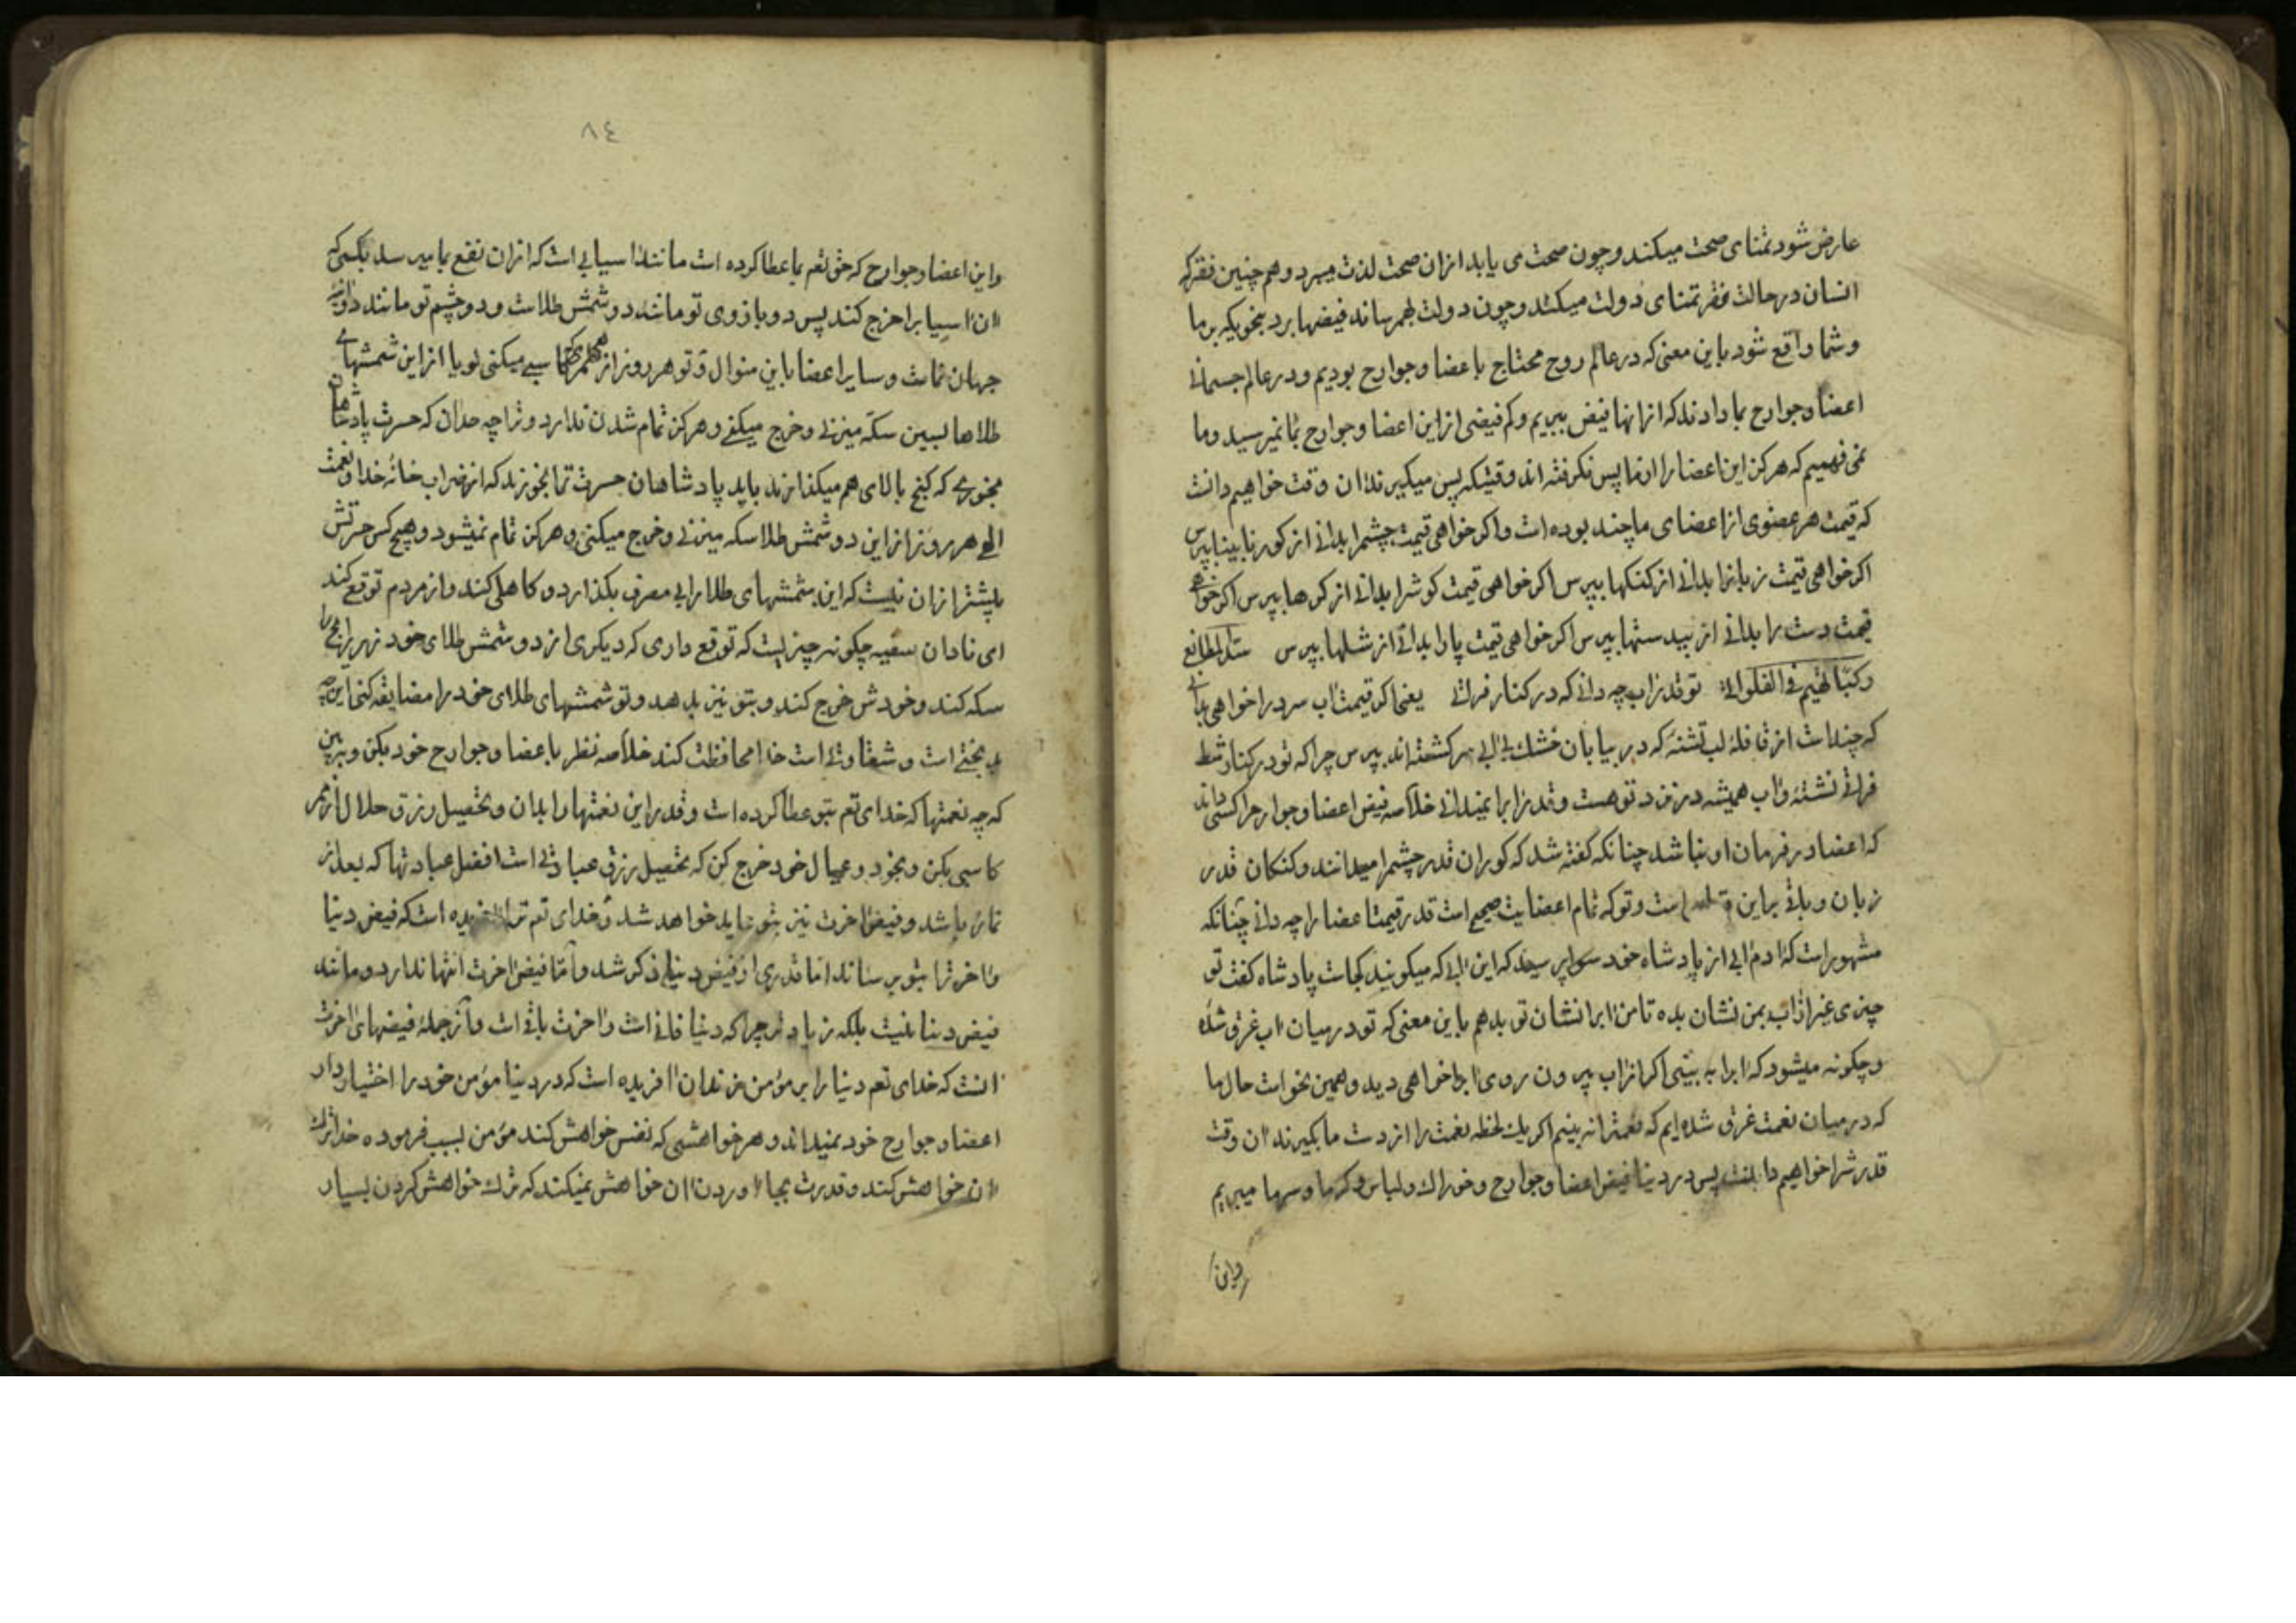 عارض شود تمنای صحت میکند و چون صحت می یابد ازان صحت لذت میبرد و هم چنین فقر که
انسان در حالت فقر تمنای دولت میکند و چون دولت بهمرساند فیضها برد بنحویکه بر ما
و شما واقع شود باین معنی که در عالم روح محتاج باعضا و جوارح بودیم و در عالم جسمانی
اعضا و جوارح بما دادند که ازانها فیض ببریم و کم فیضی از این اعضا و جوارح بما نمیرسید و ما
نمی فهمیم که هرکز این اعضا را از ما پس نکرفته اند وقتیکه پس میکیرند ان وقت خواهیم دانست
که قیمت هر عضوی از اعضای ما چند بوده است و اکر خواهی قیمت چشم را بدانی از کور نابینا بپرس
اکر خواهی قیمت زبانرا بدانی از کنکها بپرس اکر خواهی قیمت کوش را بدانی از کرها بپرس اکر خواهی
قیمت دست را بدانی از بیدستها بپرس اکر خواهی قیمت پا را بدانی از شلها بپرس
تو قدر اب چه دانی که در کنار فراتی یعنی اکر قیمت اب سرد را خواهی بدانی
که چند است از قافلهٔ لب تشنهٔ که در بیابان خشك بی ابی سرکشته اند بپرس چرا که تو در کنار شط
فرات نشستهٔ و اب همیشه در نزد تو هست و قدر ابرا نمیدانی خلاصه فیض اعضا و جوارح را کسی داند
که اعضا در فرمان او نباشد چنانکه کفته شد که کوران قدر چشم را میدانند و کنکان قدر
زبان و باقی براین قیاس است و تو که تمام اعضایت صحیح است قدر قیمت اعضا را چه دانی چنانکه
مشهور است که ادم ابی از پادشاه خود سوال پرسید که این ابی که میکویند کجاست پادشاه کفت تو
چیزی غیر از اب بمن نشان بده تا من ابرا نشان تو بدهم باین معنی که تو در میان اب غرق شدهٔ
و چکونه میشود که ابرا به بینی اکر ازاب بیرون روی ابرا خواهی دید و همین نحو است حال ما
که در میان نعمت غرق شده ایم که نعمت را نه بینیم اکر یك لحظه نعمت را از دست ما بکیرند ان وقت
قدرش را خواهیم دانست پس در دنیا فیض اعضا و جوارح و خوراك و لباس و کرما و سرما میبریم
و این
٨٤
و این اعضا و جوارح که حق تعم بما عطا کرده است مانند اسیابی است که ازان نفع بما میرسد بکسی که
ان اسیا برا خرج کند پس دو بازوی تو مانند دو شمش طلاست و دو چشم تو مانند دو
جهان نماست و سایر اعضا باین منوال و تو هر روز از کاسبی میکنی کویا از این شمشهای
طلاها لبین سکه میزنی و خرج میکنی و هرکز تمام شدن ندارد و ترا چه حدان که حسرت پادشاهان
بخوری که کنج بالای هم میکذارند باید پادشاهان حسرت تما بخورند که از ضراب خانهٔ خدا و نعمت
الهی هر روز از این دو شمش طلا سکه میزنی و خرج میکنی و هرکز تمام نمیشود و هیچ کس حسرتش
بیشتر ازان نیست که این شمشهای طلا را بی مصرف بکذارد و کاهلی کند و از مردم توقع کند
ای نادان سفیه چکونه چیزیست که توقع داری که دیکری از دو شمش طلای خود زهر رنجی را
سکه کند و خودش خرج کند و بتو نیز بدهد و تو شمشهای طلای خود را مضایقه کنی این چه
بدبختی است و شقاوتی است خدا محافظت کند خلاصه نظر باعضا و جوارح خود بکن و ببین
که چه نعمتها که خدای تعم بتو عطا کرده است و قدر این نعمتها را بدان و تحصیل رزق حلال از ممر
کاسبی بکن و بخود و عیال خود خرج کن که تحصیل رزق عبادتی است افضل عبادتها که بعد از
نماز باشد و فیض اخرت نیز بتو عاید خواهد شد و خدای تعم ترا افریده است که فیض دنیا
و اخرترا بتو برساند اما قدری از فیض دنیا ذکر شد و اما فیض اخرت انتها ندارد و مانند
فیض دنیا نیست بلکه زیادتر چرا که دنیا فانی است و اخرت باقی است و از جملهٔ فیضهای اخرت
انست که خدای تعم دنیا را بر مؤمن زندان افریده است که در دنیا مؤمن خود را اختیار دار
اعضا و جوارح خود نمیداند و هر خواهشی که نفس خواهش کند مؤمن بسبب فرموده خدا ترك
ان خواهش کند و قدرت بجا اوردن ان خواهش نمیکند که ترك خواهش کردن بسیار